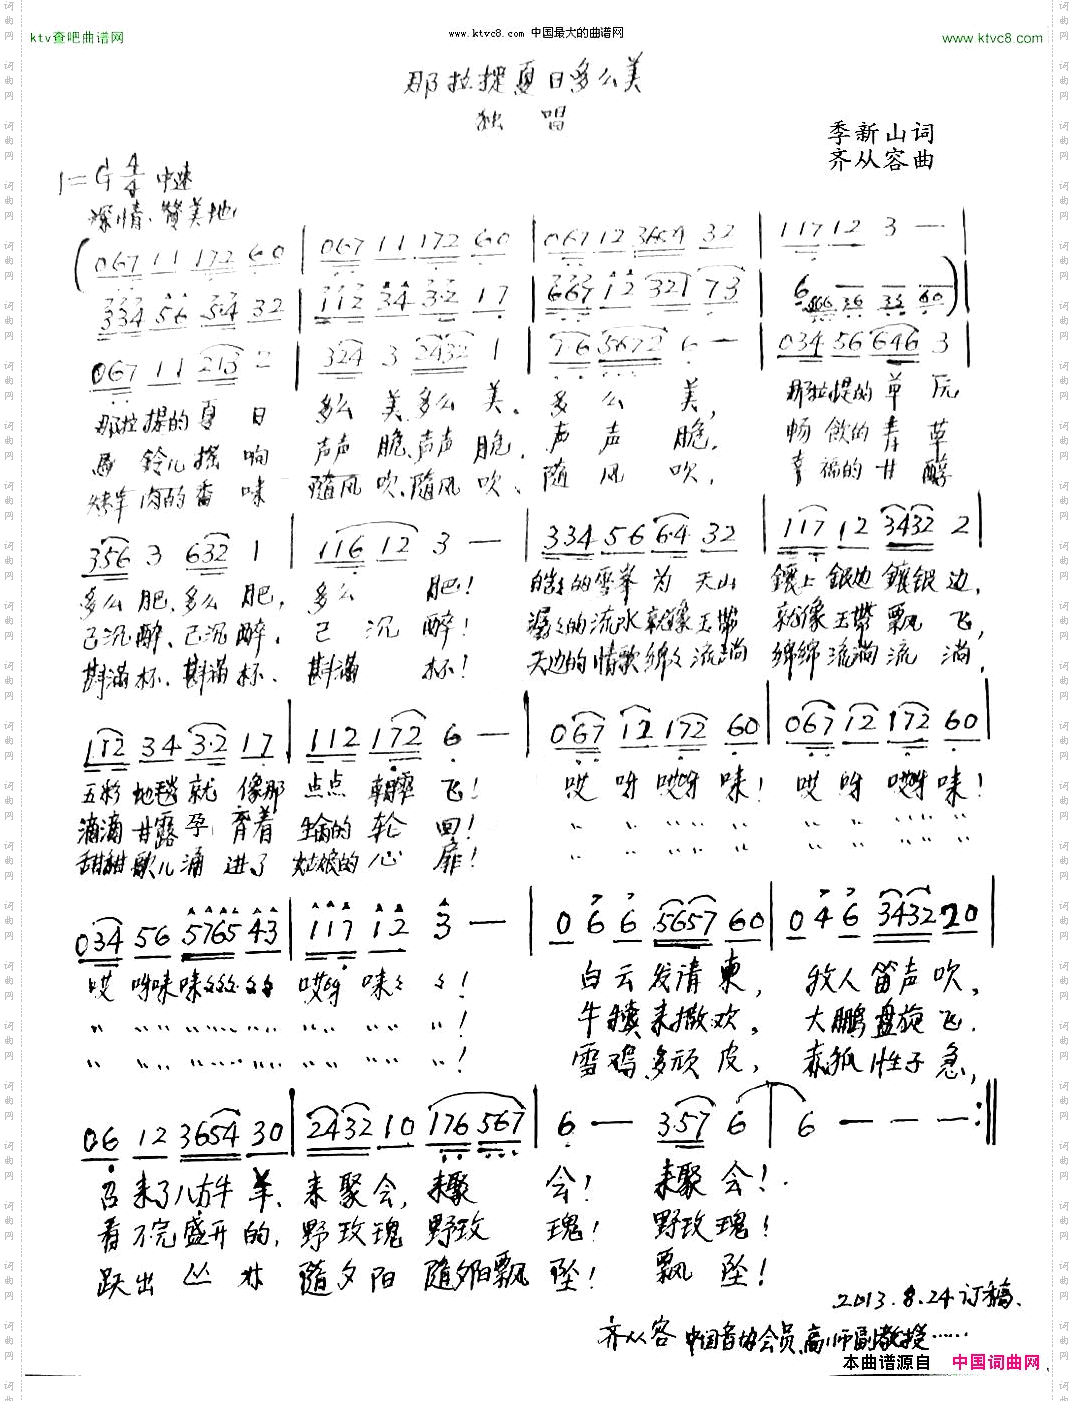 www.ktvc8.com 中国最大的曲谱网
ktv查吧曲谱网
www.ktvc8.com
那拉提夏日多么美
独 唱
季新山词
齐从容曲
1=G 4/4 中速
深情、赞美地
067 11 172 60 | 067 11 172 60 | 067 12 3664 32 | 117 12 3 — |
334 56 5·4 32 | 112 34 3·2 17 | 667 12 321 73 | 6 666 36 36 60 |
067 11 213 2 | 324 3 2432 1 | 7·6 5672 6 — | 034 56 646 3
那拉提的夏日 多么美、多么美、多么美, 那拉提的草原
铃儿摇响 声声脆、声声脆、声声脆, 畅饮的青草
烤羊肉的香味 随风吹、随风吹、随风吹, 幸福的甘醇
356 3 632 1 | 116 12 3 — | 334 56 6·4 32 | 117 12 3432 2 |
多么肥、多么肥, 多么肥! 皑皑的雪峯为天山 镶上银边镶银边,
已沉醉、已沉醉、已沉醉! 潺潺的流水就像玉带 就像玉带飘飞,
斟满杯、斟满杯、斟满杯! 天边的情歌绵绵流淌 绵绵流淌流淌,
112 34 3·2 17 | 112 172 6 — | 067 12 172 60 | 067 12 172 60 |
五彩地毯就像那点点翱翔飞! 哎呀哎呀咪! 哎呀哎呀咪!
滴滴甘露孕育着生命的轮回! 〃 〃 〃 〃 〃
甜甜歌儿涌进了姑娘的心扉! 〃 〃 〃 〃 〃
034 56 5765 43 | 117 12 3 — | 0 6 6 5657 60 | 0 4 6 3432 20 |
哎呀咪咪 哎呀咪! 白云发请柬, 牧人笛声吹,
〃 〃 〃 〃! 牛犊来撒欢, 大鹏盘旋飞.
〃 〃 〃 〃! 雪鸡多顽皮, 赤狐性子急,
06 12 3654 30 | 2432 10 176 567 | 6 — 3·57 6 | 6 — — — :||
召来了八方牛羊、来聚会, 来聚会! 来聚会!
看不完盛开的, 野玫瑰野玫瑰! 野玫瑰!
跃出丛林随夕阳随夕阳飘坠! 飘坠!
2013.8.24订稿.
齐从容 中国音协会员、高师副教授……
本曲谱源自 中国词曲网